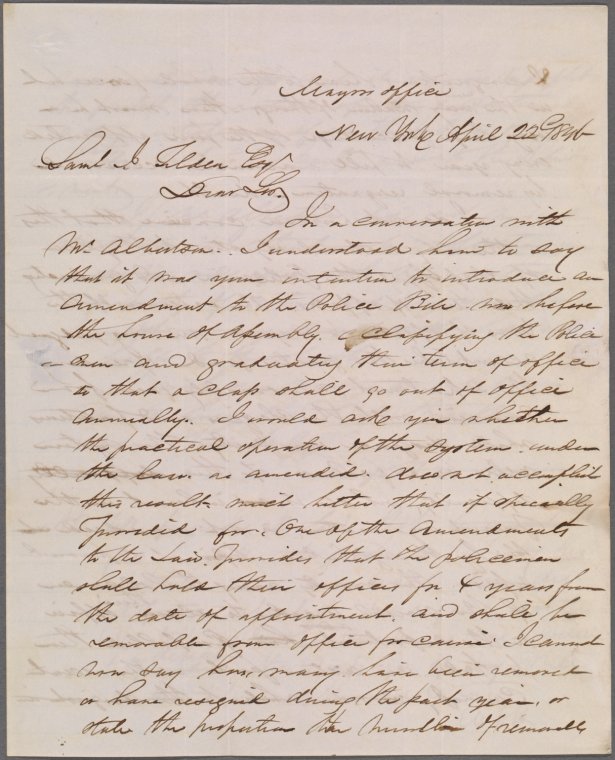 Mayors office
New York April 22d 1846
Saml J Tilden Esqr
Dear Sir
In a conversation with
Mr Albertson. I understood him to say
that it was your intention to introduce an
amendment to the Police Bill now before
the house of Assembly. classifying the Police
men and graduating their term of office
so that a class shall go out of office
annually. I would ask you whether
the practical operation of the system under
the law. as amended. does not accomplish
this result much better that if specially
provided for. One of the Amendments
to the Law. provides that the policemen
shall hold their offices for 4 years from
the date of appointment. and shall be
removable from office for cause. I cannot
now say how many have been removed
or have resigned during the past year, or
state the proportion the number of removals